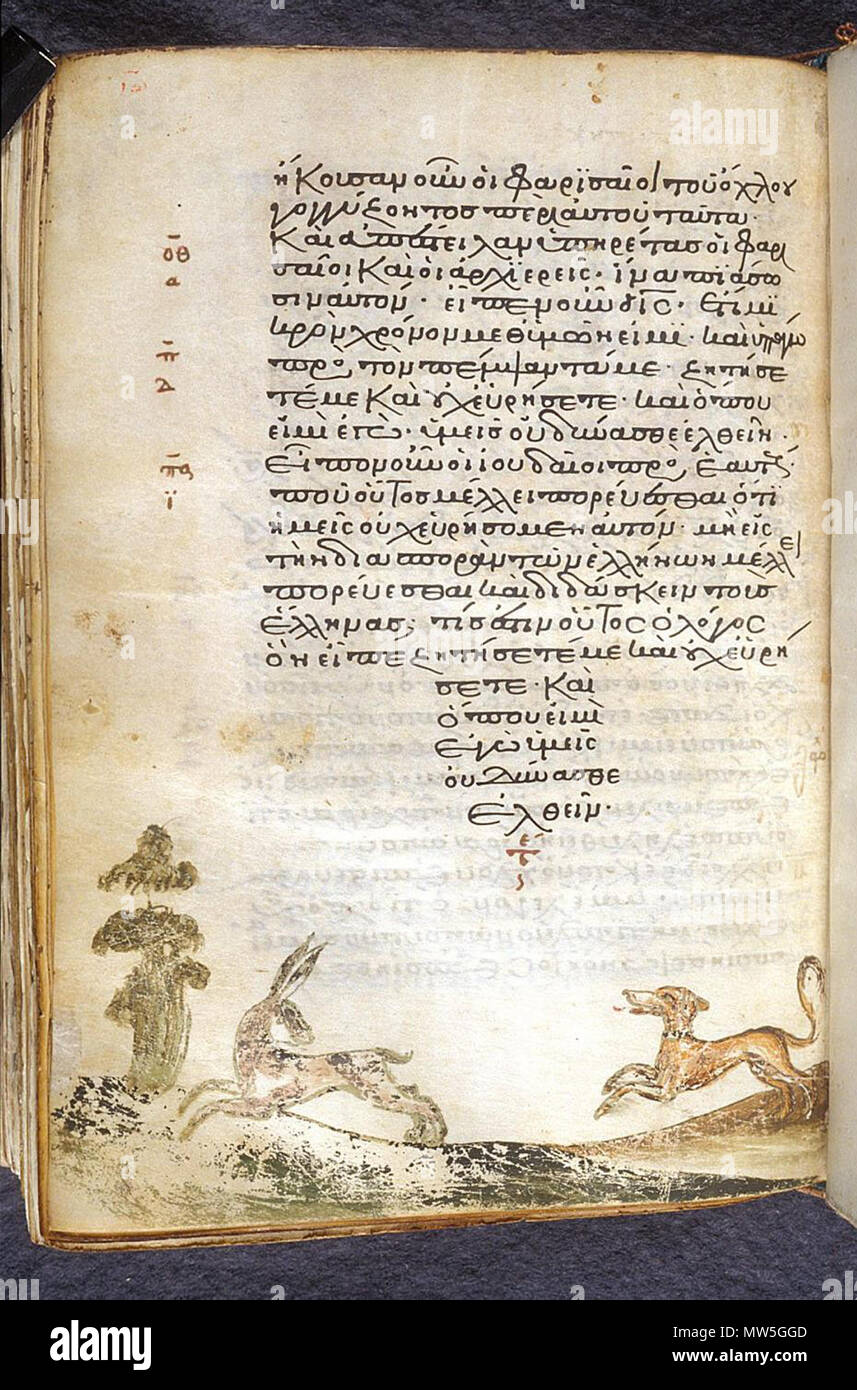 ἤκουσαν οὖν οἱ φαρϊσαῖοι τοῦ ὄχλου
γογγύζοντος περὶ αὐτοῦ ταῦτα·
Καὶ ἀπέστειλαν ὑπηρέτας οἱ φαρι
σαῖοι Καὶ οἱ ἀρχϊερεῖς· ἵνα πϊάσω
σιν αὐτόν· εἶπεν οὖν ὁ ις· Ἔτι μϊ
κρὸν χρόνον μεθ ὑμῶν εἰμϊ· καὶ ὑπάγω
πρὸς τὸν πέμψαντά με· ζητήσε
τέ με Καὶ οὐχ εὑρήσετε· καὶ ὅπου
εἰμὶ ἐγὼ· ὑμεῖς οὐ δύνασθε ἐλθεῖν·
Εἶπον οὖν οἱ ἰουδαῖοι πρὸς ἑαυτούς·
ποῦ οὗτος μέλλει πορεύεσθαι ὅτι
ἡμεῖς οὐχ εὑρήσομεν αὐτόν· μὴ εἰς
τὴν διασπορὰν τῶν ἑλλήνων μέλλει
πορεύεσθαι καὶ διδάσκειν τοὺς
ἕλληνας; τίς ἐστιν οὗτος ὁ λόγος
ὃν εἶπε ζητήσετέ με καὶ οὐχ εὑρή
σετε· Καὶ
ὅπου εἰμὶ
ἐγὼ ὑμεῖς
οὐ δύνασθε
ἐλθεῖν·
οθ
α
π
δ
πα
ϊ
alamy
Image ID: MW5GGD
www.alamy.com